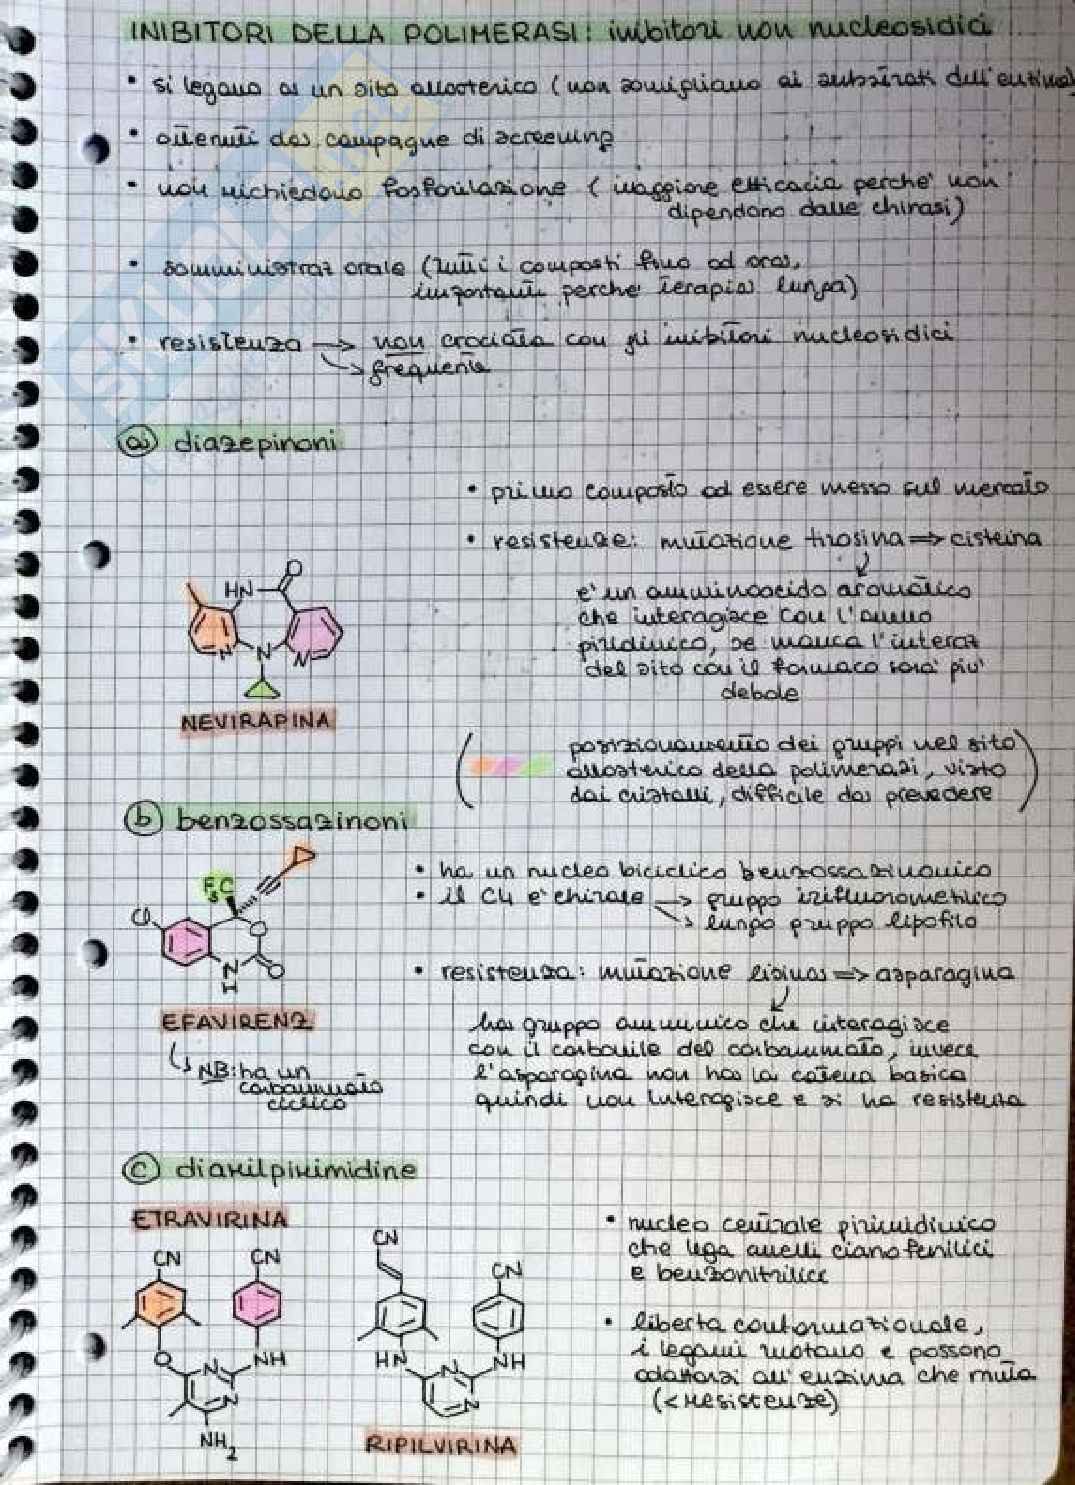 INIBITORI DELLA POLIMERASI: inibitori non nucleosidici
• si legano a un sito allosterico (non somigliano ai substrati dell'enzima)
• ottenuti da campagne di screening
• non richiedono fosforilazione (maggiore efficacia perche' non
dipendono dalle chinasi)
• somministraz orale (tutti i composti fino ad ora,
importante perche' terapia lunga)
• resistenza → non crociata con gli inibitori nucleosidici
→ frequente
a) diazepinoni
• primo composto ad essere messo sul mercato
• resistenze: mutazione tirosina ⇒ cisteina
e' un amminoacido aromatico
che interagisce con l'anello
piridinico, se manca l'interaz
del sito con il farmaco sara' piu'
debole
HN O
N N N
NEVIRAPINA
( posizionamento dei gruppi nel sito
allosterico della polimerasi, visto
dai cristalli, difficile da prevedere )
b) benzossazinoni
• ha un nucleo biciclico benzossazinonico
• il C4 e' chirale → gruppo trifluorometilico
→ lungo gruppo lipofilo
F3C
Cl O
N O
H
• resistenza: mutazione lisina ⇒ asparagina
EFAVIRENZ
ha gruppo amminico che interagisce
con il carbonile del carbammato, invece
l'asparagina non ha la catena basica
quindi non interagisce e si ha resistenza
↳ NB: ha un
carbammato
ciclico
c) diarilpirimidine
ETRAVIRINA
• nucleo centrale pirimidinico
che lega anelli cianofenilici
e benzonitrilici
CN CN
O N NH
N
NH2
CN
CN
HN N NH
N
RIPILVIRINA
• liberta conformazionale,
i legami ruotano e possono
adattarsi all'enzima che muta
(< resistenze)